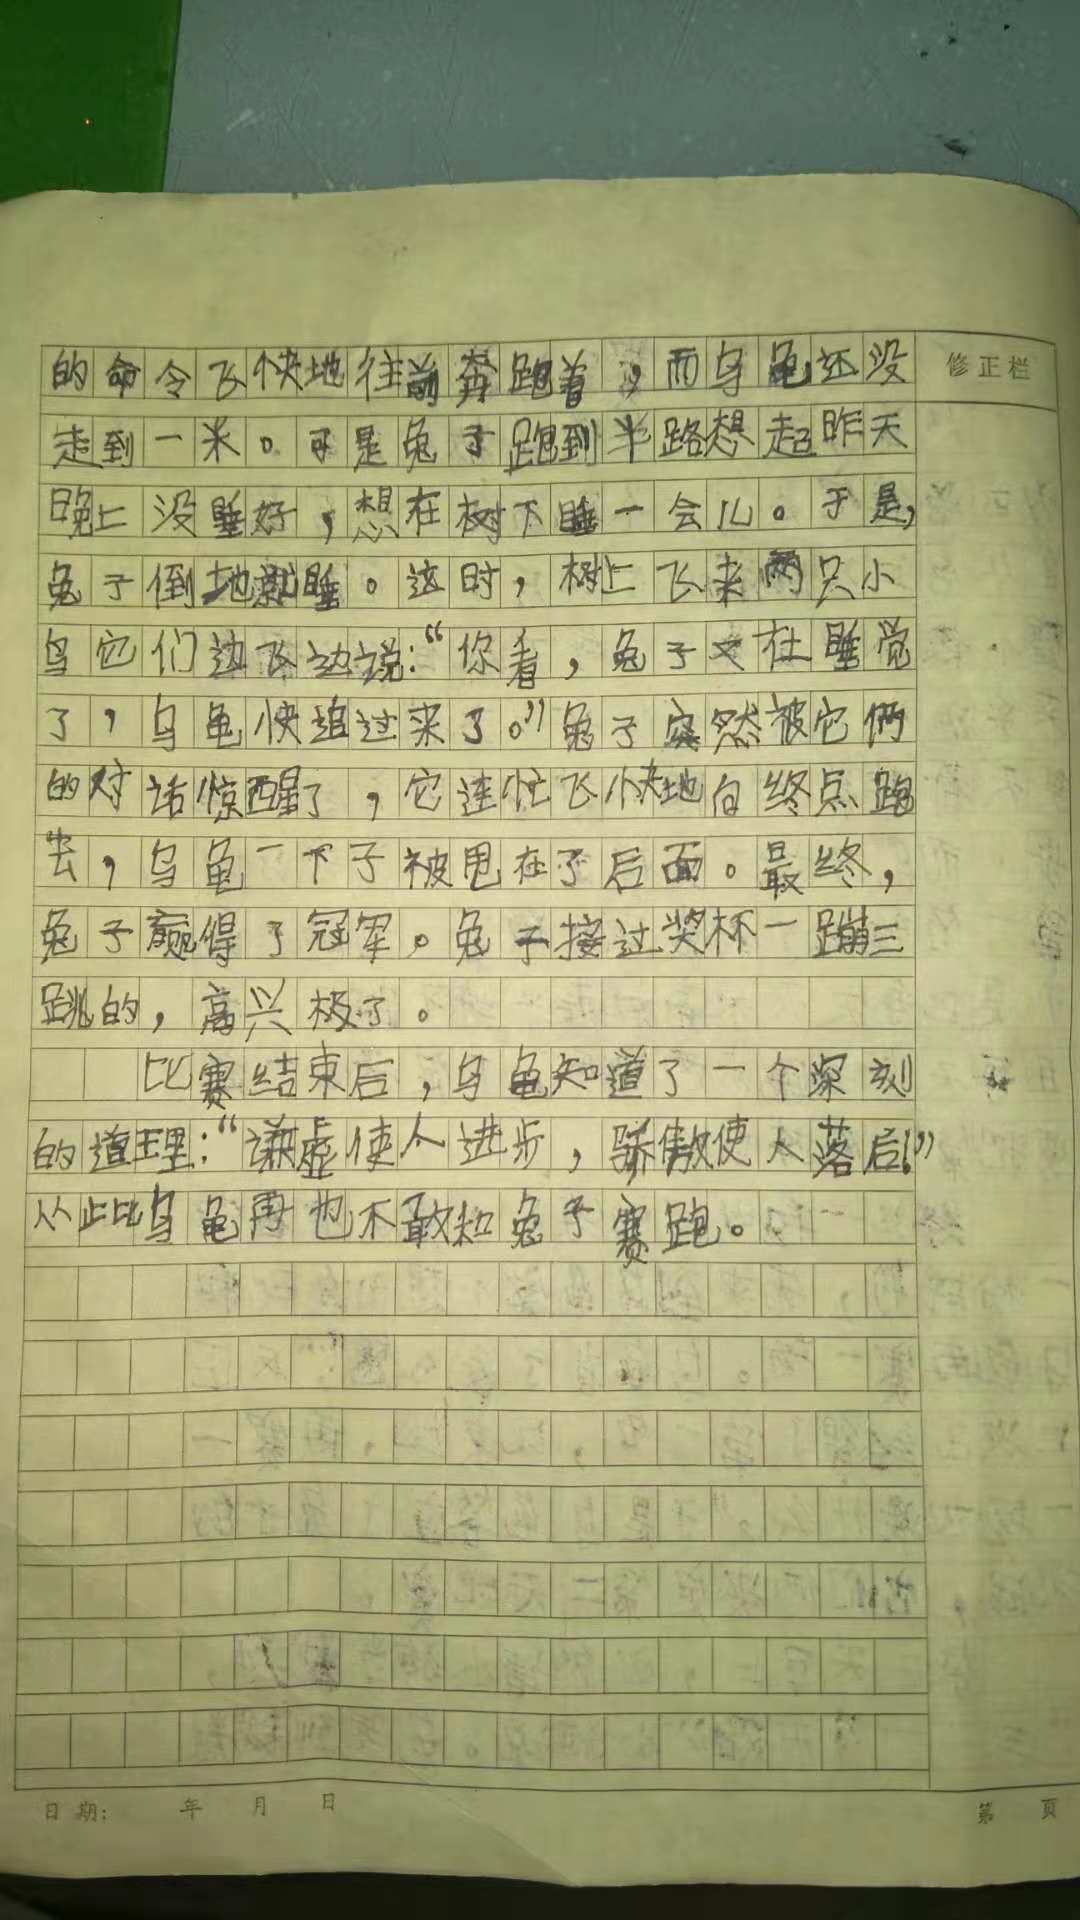 的命令飞快地往前奔跑着，而乌龟还没
修正栏
走到一米。可是兔子跑到半路想起昨天
晚上没睡好，想在树下睡一会儿。于是，
兔子倒地就睡。这时，树上飞来两只小
鸟它们边飞边说：“你看，兔子又在睡觉
了，乌龟快追过来了。”兔子突然被它俩
的对话惊醒了，它连忙飞快地向终点跑
去，乌龟一下子被甩在了后面。最终，
兔子赢得了冠军。兔子接过奖杯一蹦三
跳的，高兴极了。
比赛结束后，乌龟知道了一个深刻
的道理：“谦虚使人进步，骄傲使人落后！”
从此乌龟再也不敢和兔子赛跑。
日期： 年 月 日
第 页